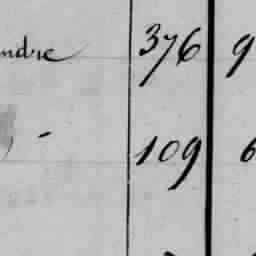 ndre 376 9
- 109 6